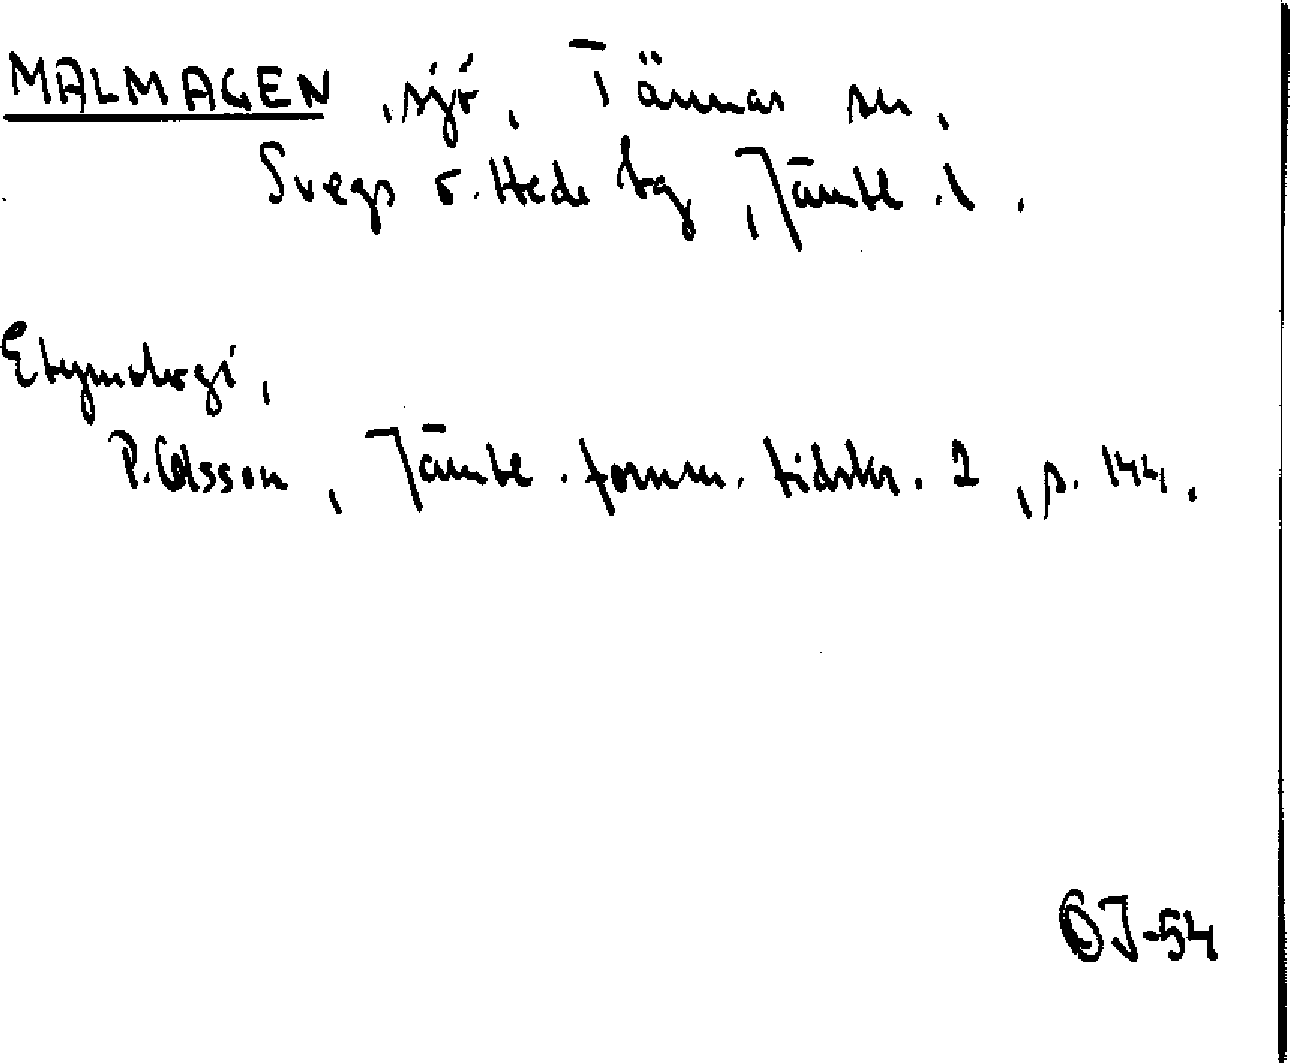 MALMAGEN, sjö, Tännäs sn,
Svegs o. Hede tg, Jämtl. l.
Etymologi,
P. Olsson, Jämtl. fornm. tidskr. 2, s. 144.
OJ-54